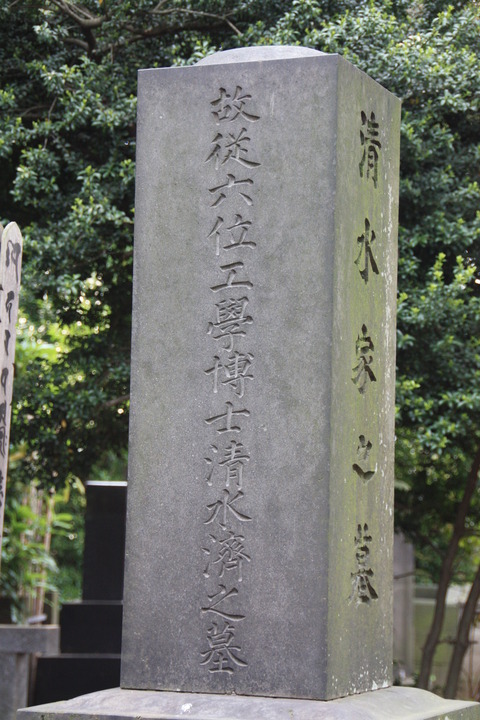 故從六位工學博士清水濟之墓
清水家之墓